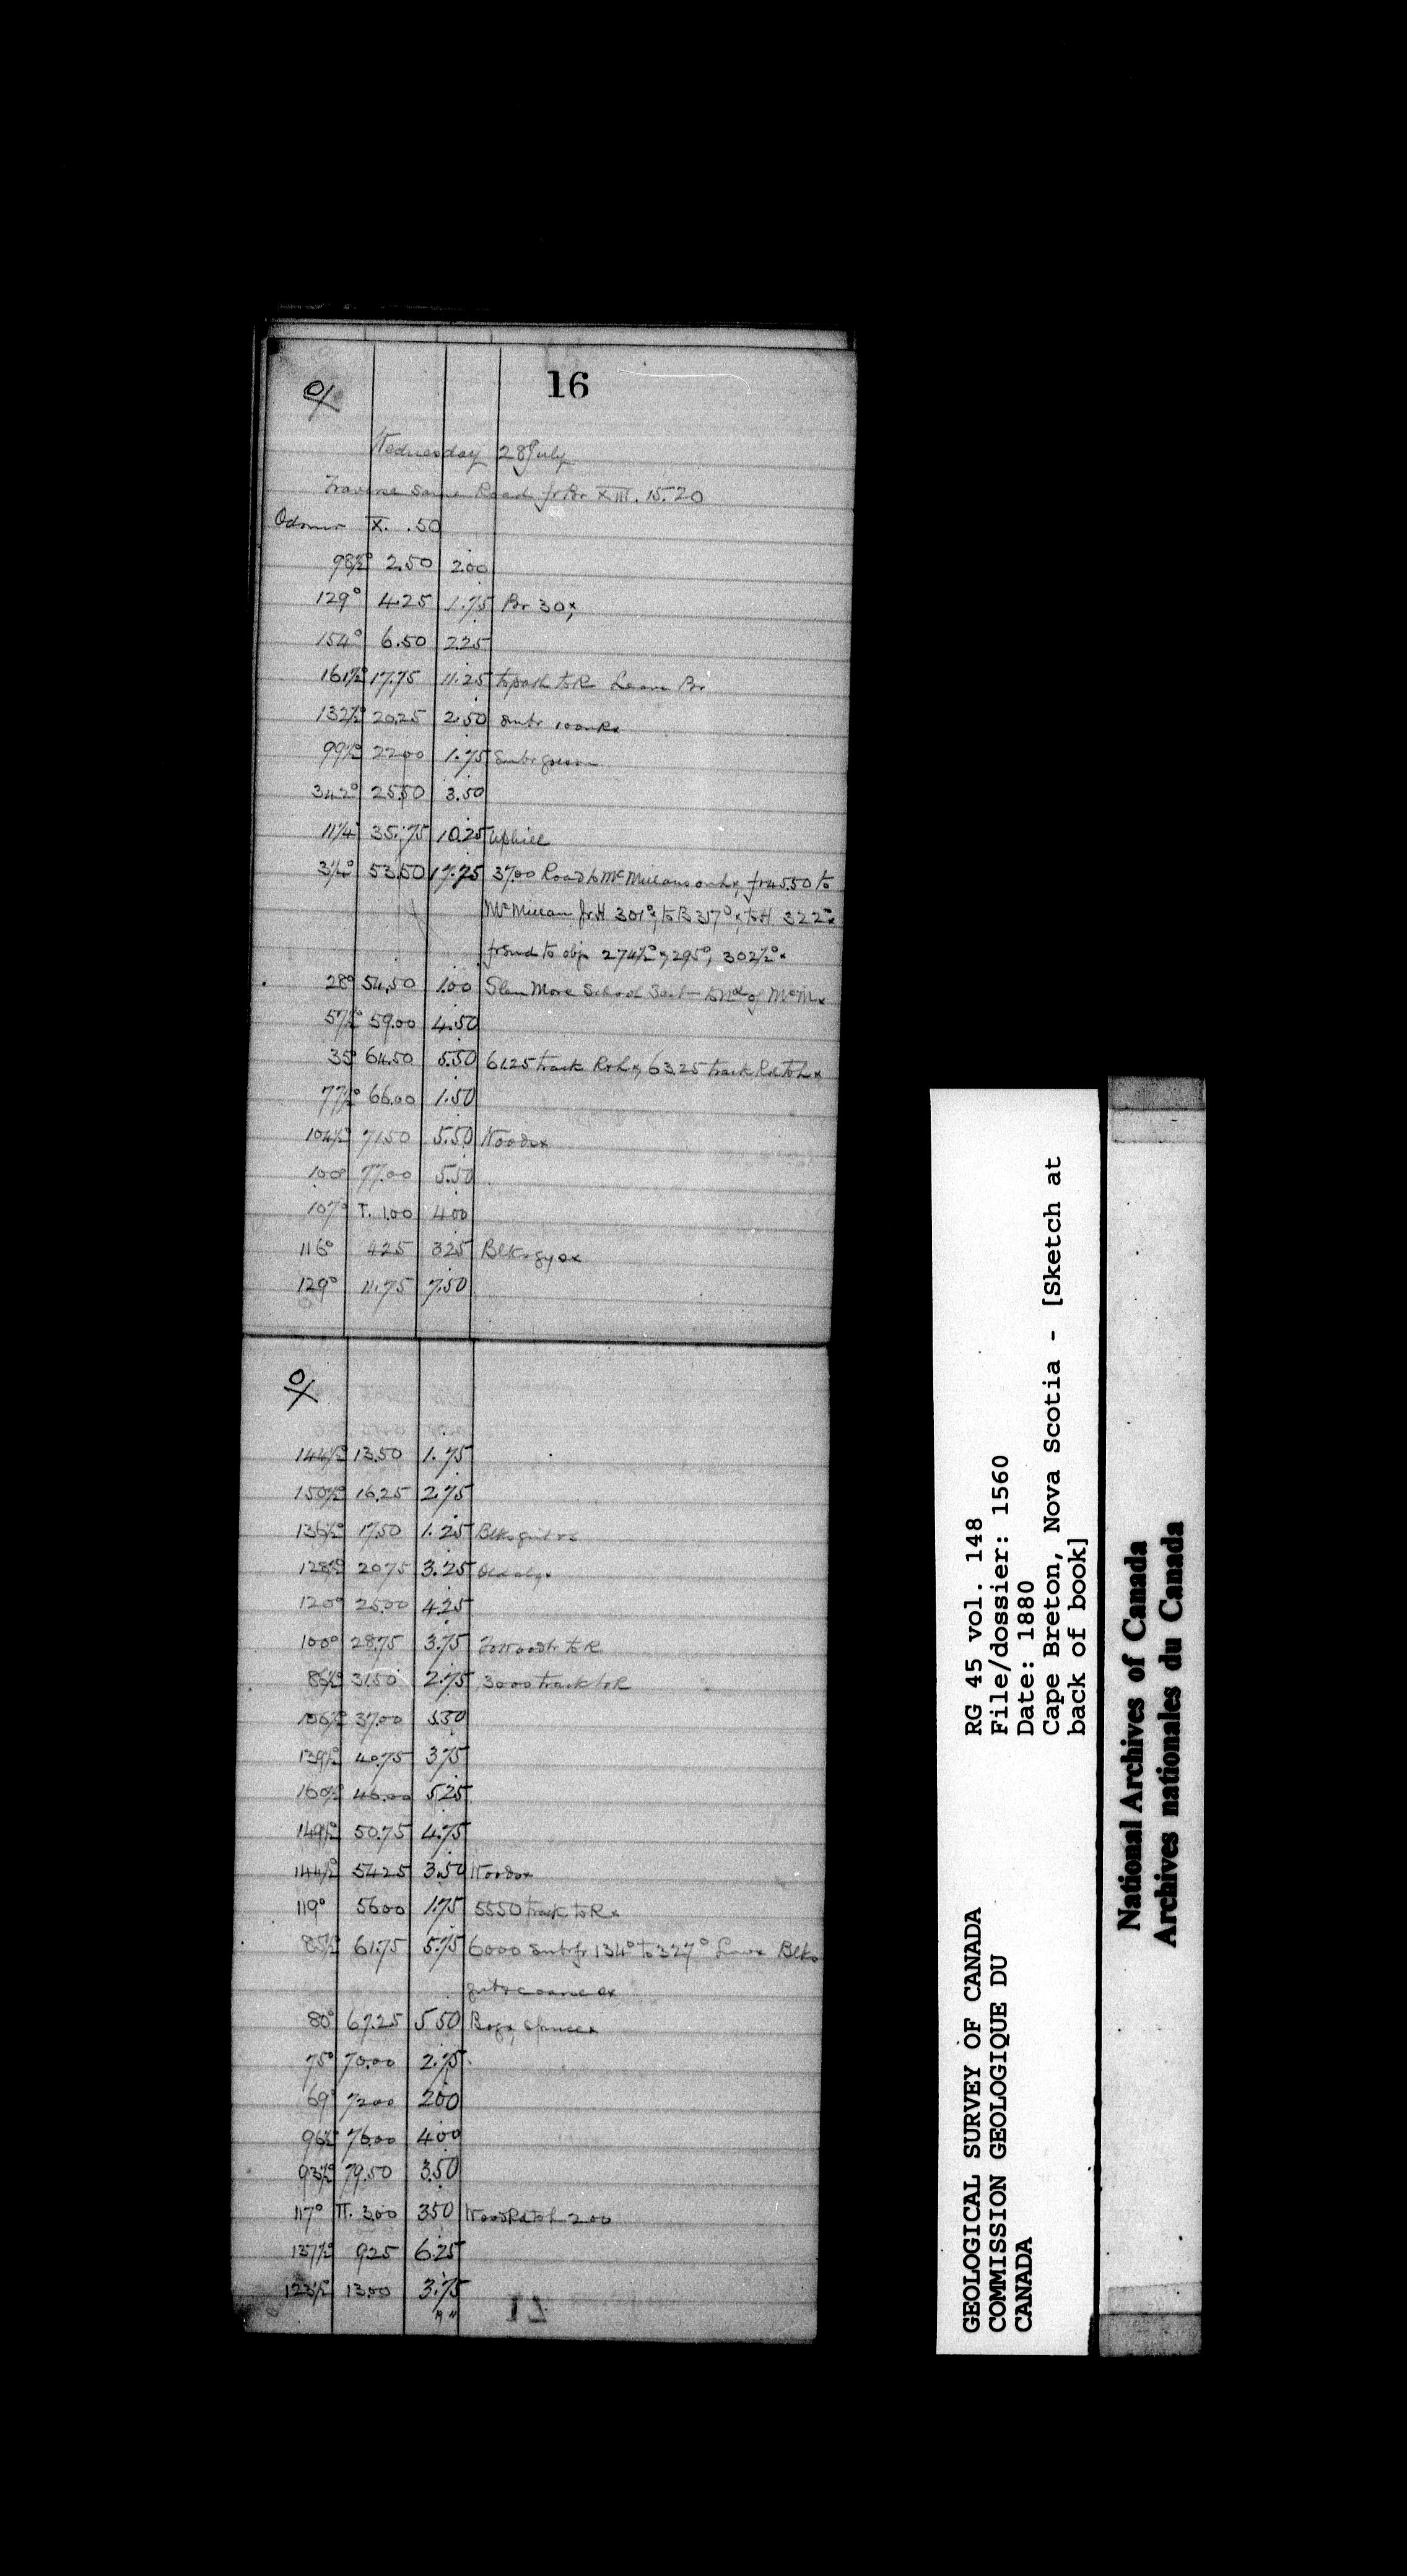 16
Wednesday 28 July
Traverse same Road fr Br XIII. 15.20
Odomr X. .50
98½° 2.50 2.00
129° 4.25 1.75 Br 30x
154° 6.50 2.25
161½° 17.75 11.25 to path to R Leave Br
132½° 20.25 2.50 Smbr
99½° 22.00 1.75 Smbr
342° 25.50 3.50
11¼° 35.75 10.25 uphill
3½° 53.50 17.75 37.00 Road to McMillans on Lx, fr 45.50 to
McMillan Jr H 301°x, to B 317°x, to H 322°x
fr end to obj 274½°x, 295°, 302½°x
28° 54.50 1.00 Glen More School
57½° 59.00 4.50
35° 64.50 5.50 61.25 track R to Lx, 63.25 track Rd to Lx
77½° 66.00 1.50
104½° 71.50 5.50 Woodsx
100° 77.00 5.50
107° T. 1.00 4.00
116° 4.25 3.25 Blks
129° 11.75 7.50
144½° 13.50 1.75
150½° 16.25 2.75
136½° 17.50 1.25 Blks
128½° 20.75 3.25 Old
120° 25.00 4.25
100° 28.75 3.75 to R
86½° 31.50 2.75 30.00 track to R
106½° 37.00 5.50
139½° 40.75 3.75
160½° 46.00 5.25
149½° 50.75 4.75
144½° 54.25 3.50 Woodsx
119° 56.00 1.75 55.50 track to Rx
85½° 61.75 5.75 60.00 Smbr fr 134° to 327° Blks
coarse
80° 67.25 5.50 Bogx, sprucex
75° 70.00 2.75
69° 72.00 2.00
96½° 76.00 4.00
93½° 79.50 3.50
117° TT. 3.00 3.50 Wood Rd to L 2.00
137½° 9.25 6.25
123½° 13.00 3.75
17
GEOLOGICAL SURVEY OF CANADA
COMMISSION GEOLOGIQUE DU
CANADA
RG 45 vol. 148
File/dossier: 1560
Date: 1880
Cape Breton, Nova Scotia - [Sketch at
back of book]
National Archives of Canada
Archives nationales du Canada